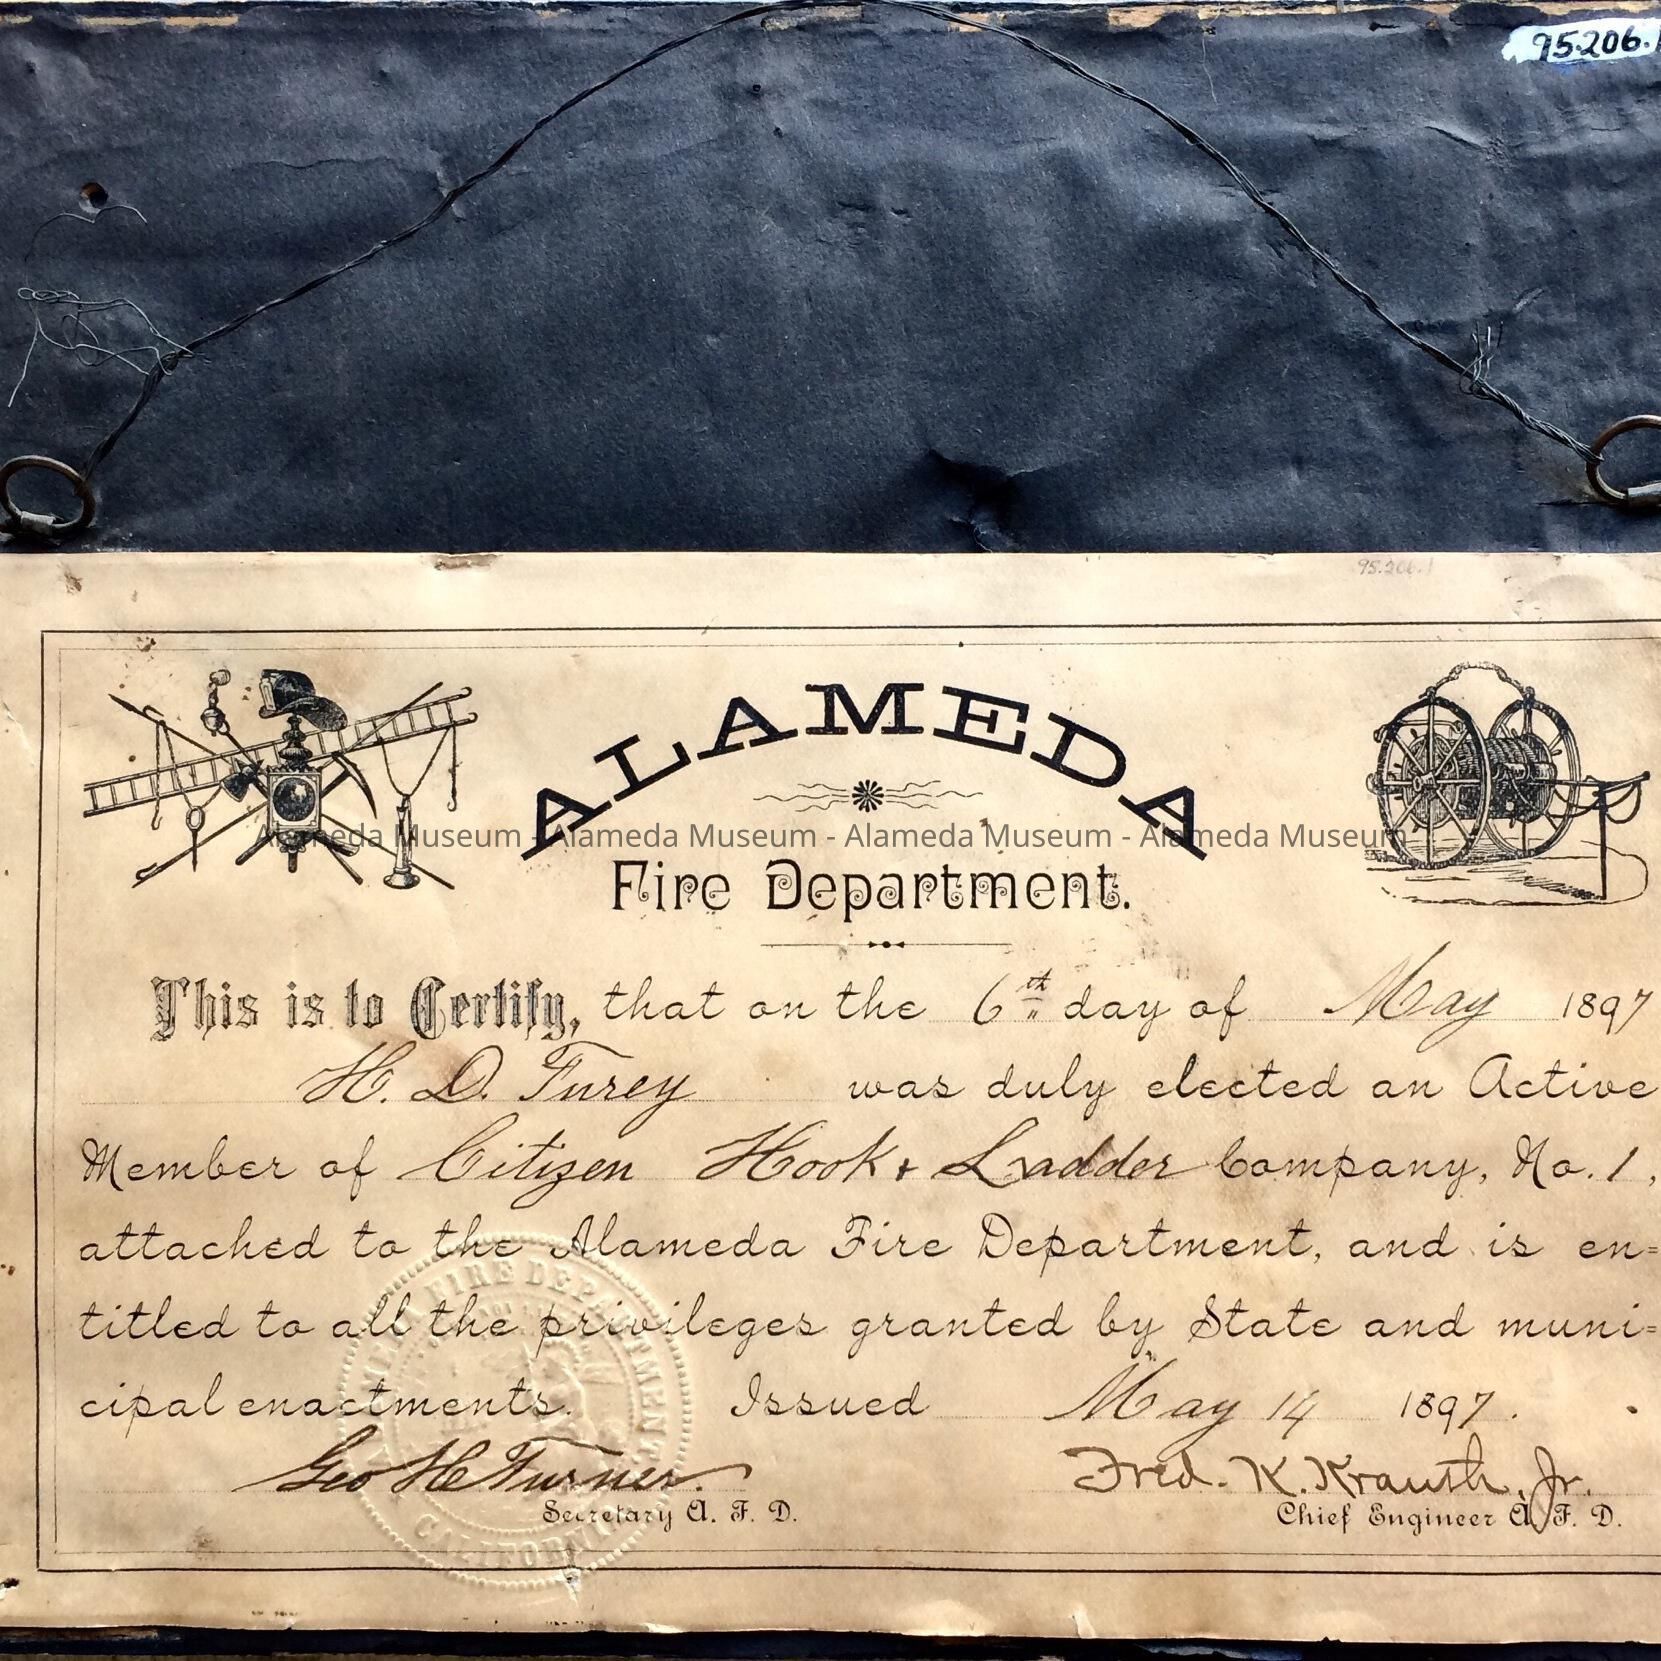 95.206.1
95.206.1
ALAMEDA
Alameda Museum - Alameda Museum - Alameda Museum - Alameda Museum
Fire Department.
This is to Certify, that on the 6th day of May 1897
H. D. Furey was duly elected an Active
Member of Citizen Hook & Ladder Company, No. 1,
attached to the Alameda Fire Department, and is en=
titled to all the privileges granted by State and muni=
cipal enactments. Issued May 14 1897.
Geo H Turner. Fred. K. Krauth, Jr.
Secretary A. F. D. Chief Engineer A. F. D.
FIRE DEPARTMENT
CALIFORNIA